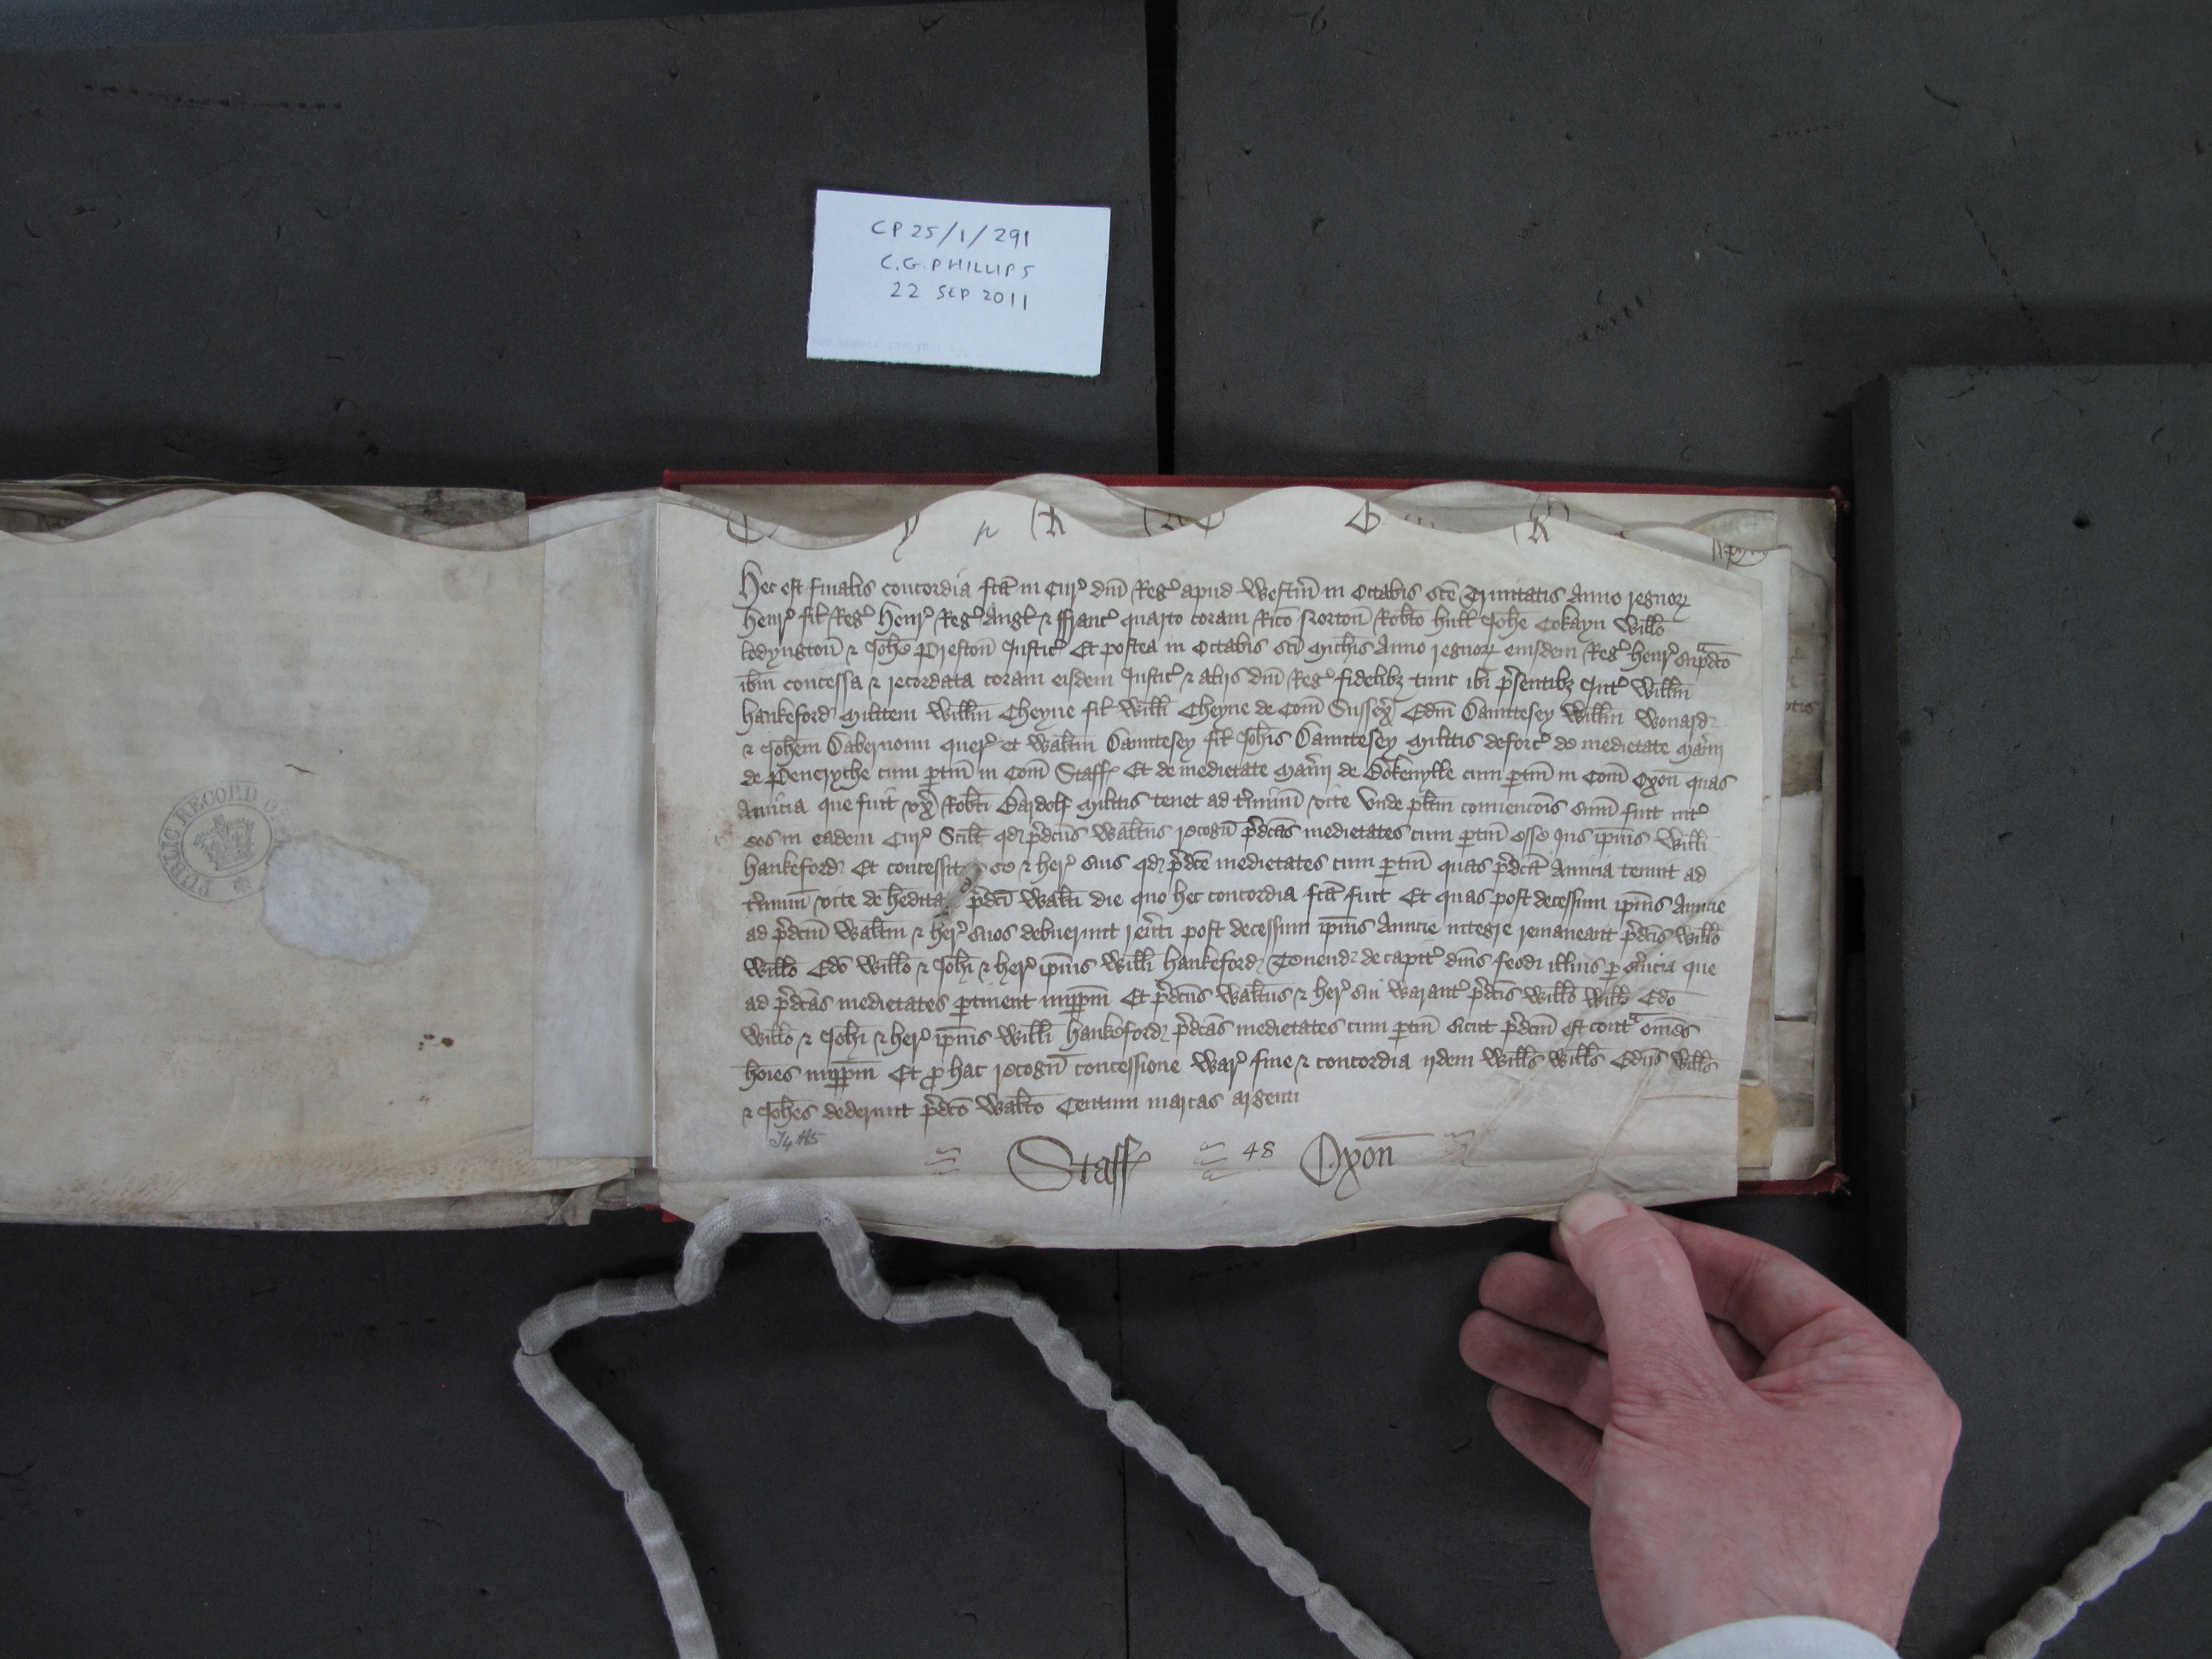 CP 25/1/291
C.G. PHILLIPS
22 SEP 2011
Hec est finalis concordia fcā in Cur' dnī Reg' apud Westm̄ in Octabis scē Trinitatis Anno regnoꝝ
Henr' fil' Reg' Henr' Reg' Angl' ⁊ ffranc' quarto coram Ric̄o Norton̄ Rob̄to Hull Joh̄e Cokayn Will̄o
lodyngton̄ ⁊ Joh̄e Preston̄ Justic' Et postea in Octabis scī Mich̄is Anno regnoꝝ eiusdem Reg' Henr' sup̄dcō
ib̄m concessa ⁊ recordata coram eisdem Justic' ⁊ alijs dnī Reg' fidelibꝫ tunc ibi p̄sentibꝫ Int' Will̄m
Hankeford' Militem Will̄m Cheyne fil' Will̄i Cheyne de Com̄ Sussex̄ Edm̄ Dauntesey Will̄m Wonard'
⁊ Joh̄em Dabernoun quer' et Walt̄m Dauntesey fil' Joh̄is Dauntesey Militis deforc' de medietate Man̄ij
de Pencryche cum ptin̄ in Com̄ Staff' Et de medietate Man̄ij de Bokenylle cum ptin̄ in Com̄ Oxon̄ quas
Amicia que fuit vx̄ Rob̄ti Bardolf Militis tenet ad t̄minū vite Vnde pl̄itm conuencōis sum̄ fuit int'
eos in eadem Cur' Scil̄t qd' p̄dcūs Walt̄us recogn̄ p̄dcās medietates cum ptin̄ esse Jus ip̄ius Will̄i
Hankeford' Et concessit se ⁊ her' suis qd' p̄dcē medietates cum ptin̄ quas p̄dcā Amicia tenuit ad
t̄minū vite de hēdita p̄dcī Walt̄i die quo hec concordia fcā fuit Et quas post decessum ip̄ius Amicie
ad p̄dcm̄ Walt̄m ⁊ her' suos debuerunt reūti post decessum ip̄ius Amicie integre remaneant p̄dcīs Will̄o
Will̄o Edō Will̄o ⁊ Joh̄i ⁊ her' ip̄ius Will̄i Hankeford' Tenend' de capit' dn̄is feodi illius p s̄uicia que
ad p̄dcās medietates ptinent imppm̄ Et p̄dcūs Walt̄us ⁊ her' sui Warant' p̄dcīs Will̄o Will̄o Edō
Will̄o ⁊ Joh̄i ⁊ her' ip̄ius Will̄i Hankeford' p̄dcās medietates cum ptin̄ sicut p̄dcm̄ est contᵃ om̄es
hoīes imppm̄ Et ꝓ hac recogn̄ concessione War' fine ⁊ concordia ijdem Will̄s Will̄s Edūs Will̄s
⁊ Joh̄es dederunt p̄dcō Walt̄o Centum marcas argenti
T4 H5
Staff' 48 Oxon̄
PUBLIC RECORD O